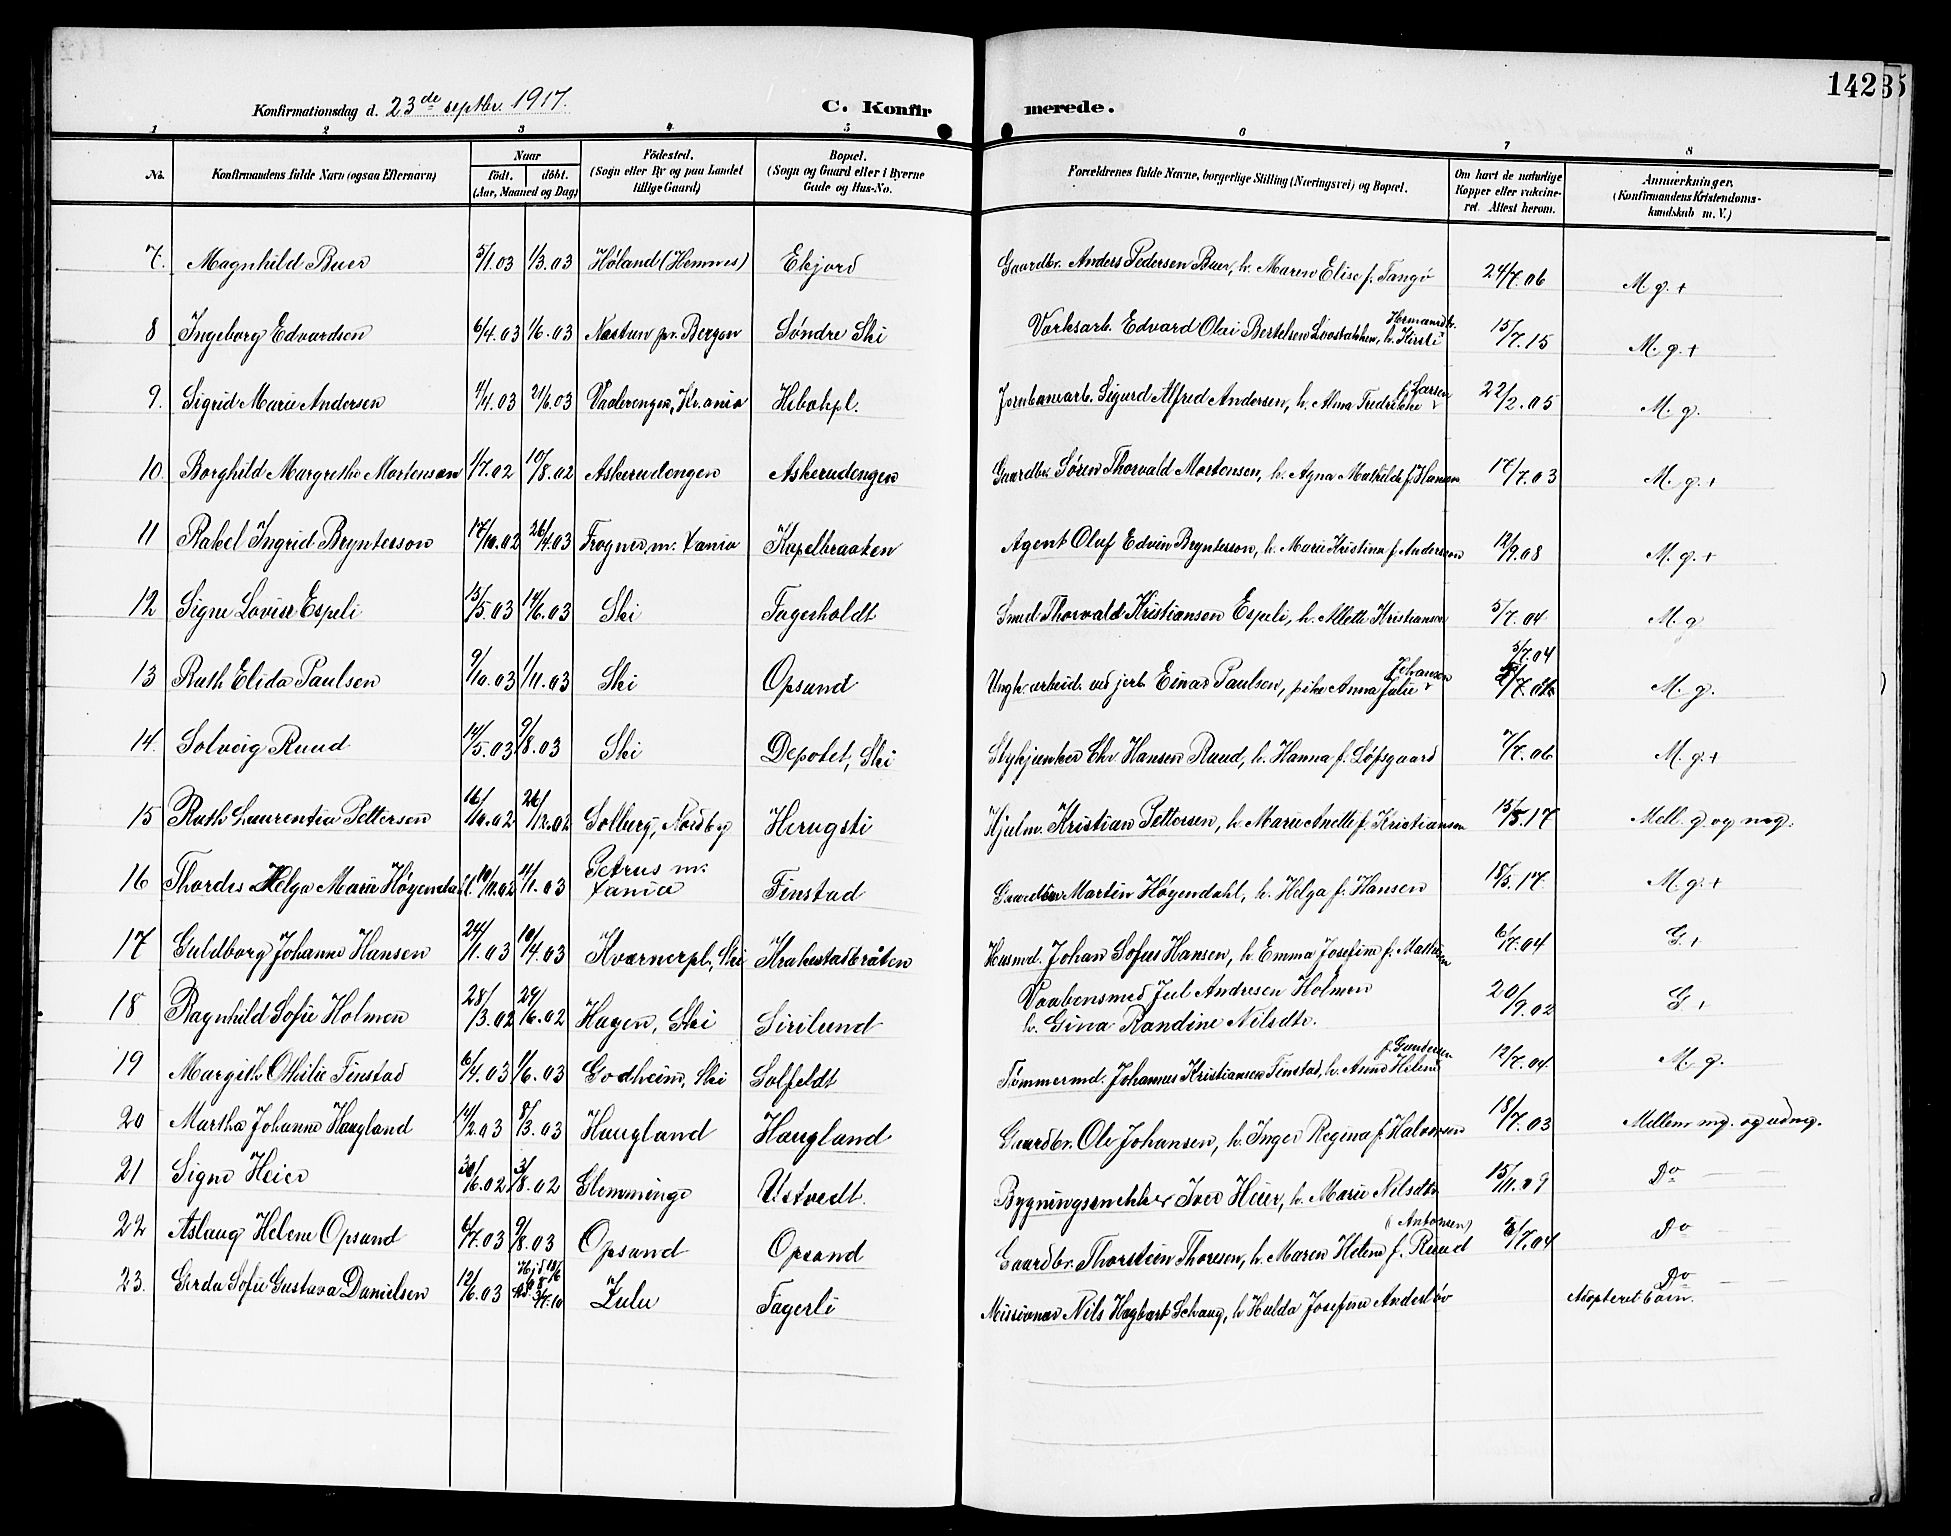 142
Konfirmationsdag d. 23de septbr. 1917.
C. Konfirmerede.
1 2 3 4 5 6 7 8
No. Konfirmandens fulde Navn (ogsaa Efternavn) Naar født. døbt. (Aar, Maaned og Dag) Fødested. (Sogn eller By og paa Landet tillige Gaard) Bopæl. (Sogn og Gaard eller i Byerne Gade og Hus-No. Forældrenes fulde Navne, borgerlige Stilling (Næringsvei) og Bopæl. Om havt de naturlige Kopper eller vakcineret. Attest herom. Anmærkninger. (Konfirmandens Kristendomskundskab m. V.)
7. Magnhild Buer 5/1.03 1/3.03 Høland (Hemnes) Ekjord Gaardbr. Anders Pedersen Buer, h. Maren Elise f. Tangø 24/7.06 M. g. +
8 Ingeborg Edvardsen 6/4.03 1/6.03 Nestun pr. Bergen Søndre Ski Verksarb. Edvard Olai Bertelsen h. Kirsti Hermansdtr. 15/7.15 M. g. +
9. Sigrid Marie Andersen 4/4.03 21/6.03 Vaalerengen, Kr.ania Hebokpl. Jernbanearb. Sigurd Alfred Andersen, h. Alma Fredrikke f. Larsen 22/2.05 M. g.
10. Borghild Margrethe Mortensen 1/7.02 10/8.02 Askerudengen Askerudengen Gaardbr. Søren Thorvald Mortensen, h. Agna Mathilde f. Hansen 17/7.03 M. g. +
11 Rakel Ingrid Brynterson 17/10.02 26/4.03 Frogner m. Xania Kapelbraaten Agent Oluf Edvin Brynterson, h. Marie Kristine f. Andersen 12/9.08 M. g. +
12 Signe Lovise Espeli 13/5.03 14/6.03 Ski Fagerholdt Smed Thorvald Kristiansen Espeli, h. Allette Kristiansen 5/7.04 M. g
13 Ruth Elida Paulsen 9/10.03 1/11.03 Ski Opsund Ungk. arbeid. ved jerb. Einar Paulsen, pike Anna Julie Johansen 5/7.04 M. g.
14. Solveig Ruud 14/5.03 9/8.03 Ski Depotet, Ski Stykjunker Chr. Hansen Ruud, h. Hanna f. Løfsgaard 7/7.06 M. g. +
15 Ruth Laurentia Pettersen 16/10.02 26/12.02 Solberg, Nordby Herugsti Hjulm. Kristian Pettersen, h. Marie Anette f. Kristiansen 15/5.17 Mell. g. og mg.
16 Thordis Helga Marie Høyendahl. 10/11.02 11/1.03 Petrus m: Xania Finstad Gaardbr. Martin Høyendahl, h. Helga f. Hansen 18/5.17. M. g. +
17 Guldborg Johanne Hansen 24/1.03 10/4.03 Kvernerpl., Ski Krakestadbråten Husmd. Johan Sofus Hansen, h. Emma Josefine f. 6/7.04 G. +
18 Ragnhild Sofie Holmen 28/3.02 29/6.02 Hagen, Ski Sirilund Vaabensmed Jul Andresen Holmen h. Gina Randine Nilsdtr. 20/9.02 G +
19 Margith Othilie Finstad 6/4.03 1/6.03 Godheim, Ski Solfeldt Tømmermd. Johannes Kristiansen Finstad, h. Anne Helene f. Gundersen 12/7.04 M. g.
20 Martha Johanne Haugland 14/2.03 8/3.03 Haugland Haugland Gaardbr. Ole Johansen, h. Inger Regine f. Halvorsen 18/7.03 Mellem mg. og udmg.
21 Signe Heier 30/6.02 3/8.02 Glemminge Ustvedt. Bygningssnekker Iver Heier, h. Marie Nilsdtr 15/11.09 Do
22 Aslaug Helene Opsand 6/7.03 9/8.03 Opsand Opsand Gaardbr. Thorstein Thoresen, h. Maren Helene f. Ruud (Antonsen) 5/7.04 Do
23. Gerda Sofie Gustava Danielsen 12/6.03 Hjd. 3/7.10 Zulu Fagerli Missionær Nils Hagbart Schaug, h. Hulda Josefine Andersløv Adopteret barn. Do